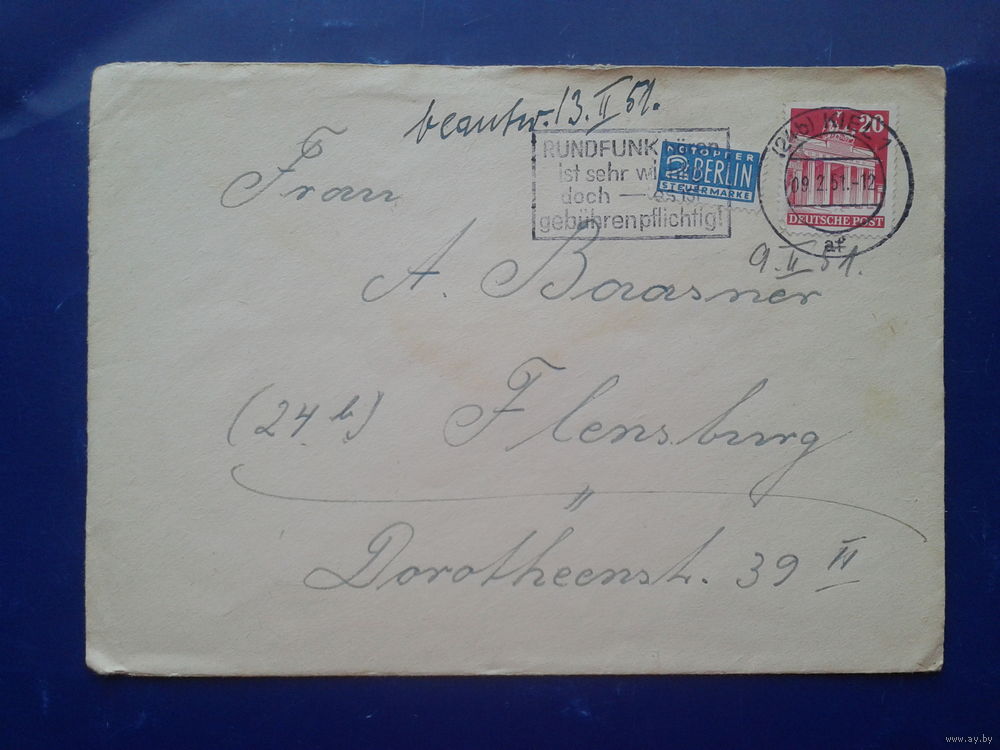 beantw. 13. II 51.
Frau
RUNDFUNK hören
ist sehr
doch —
gebührenpflichtig!
NOTOPFER
2 BERLIN
STEUERMARKE
(24b) KIEL 1
09.2.51.-12
af
20
DEUTSCHE POST
9. II 51.
A. Baasner
(24 b) Flensburg
"
Dorotheenst. 39 II
www.ay.by